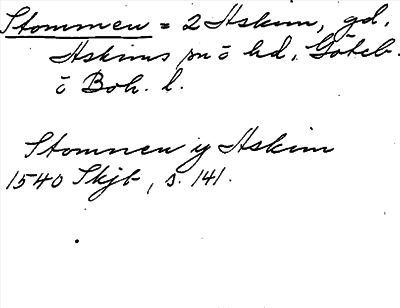 Stommen = 2 Askim, gd,
Askims sn o hd, Göteb.
o Boh. l.
Stomnen ij Askim
1540 Skjb, s. 141.